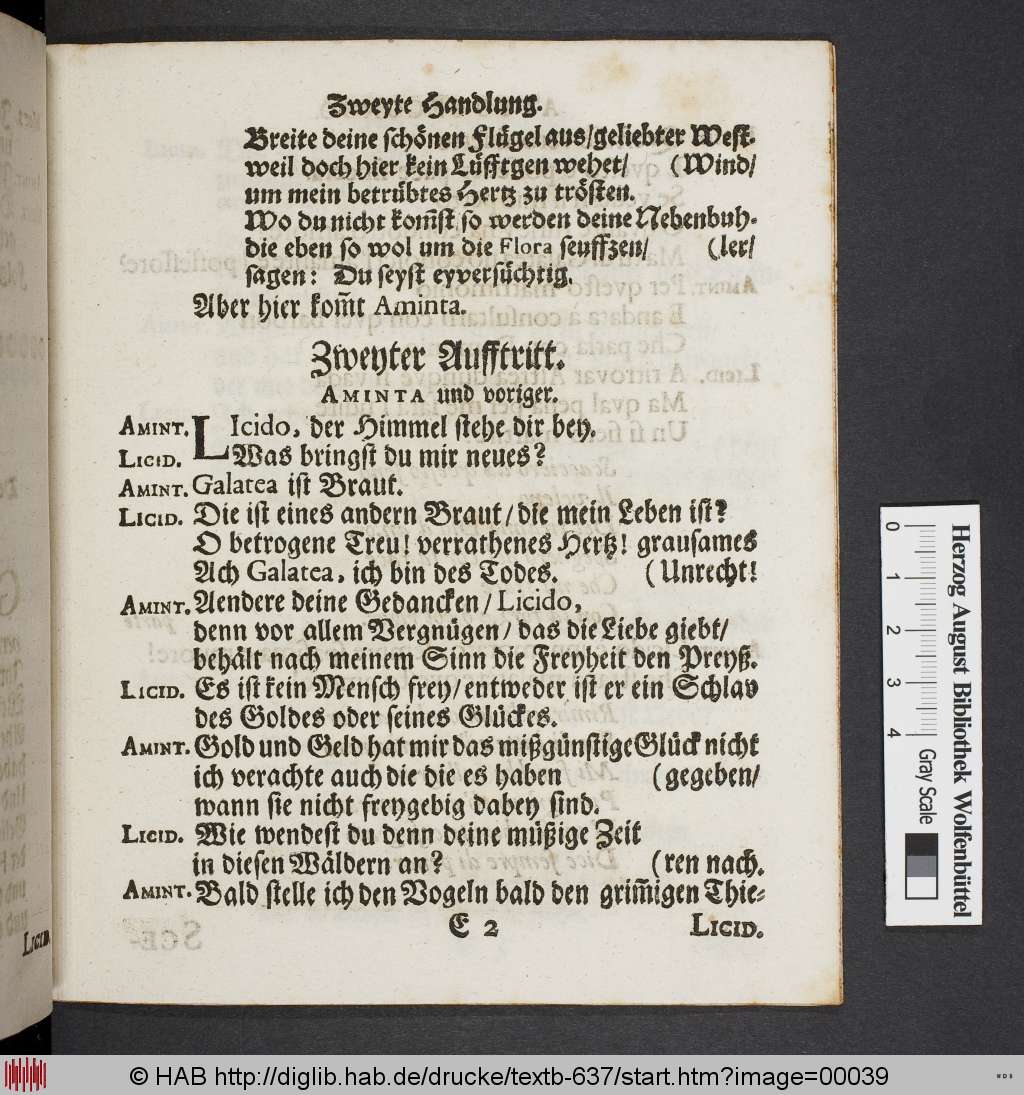 Zweyte Handlung.
Breite deine schönen Flügel aus/geliebter West-
weil doch hier kein Lüfftgen wehet/ (Wind/
um mein betrübtes Hertz zu trösten.
Wo du nicht kom̅st so werden deine Nebenbuh-
die eben so wol um die Flora seuffzen/ (ler/
sagen: Du seyst eyversüchtig.
Aber hier kom̅t Aminta.
Zweyter Aufftritt.
AMINTA und voriger.
AMINT. LIcido, der Himmel stehe dir bey.
LICID. Was bringst du mir neues?
AMINT. Galatea ist Braut.
LICID. Die ist eines andern Braut/die mein Leben ist?
O betrogene Treu! verrathenes Hertz! grausames
Ach Galatea, ich bin des Todes. (Unrecht!
AMINT. Aendere deine Gedancken/Licido,
denn vor allem Vergnügen/das die Liebe giebt/
behält nach meinem Sinn die Freyheit den Preyß.
LICID. Es ist kein Mensch frey/entweder ist er ein Schlav
des Goldes oder seines Glückes.
AMINT. Gold und Geld hat mir das mißgünstige Glück nicht
ich verachte auch die die es haben (gegeben/
wann sie nicht freygebig dabey sind.
LICID. Wie wendest du denn deine müßige Zeit
in diesen Wäldern an? (ren nach.
AMINT. Bald stelle ich den Vogeln bald den grim̅igen Thie-
E 2 LICID.
LICID.
0 1 2 3 4
Gray Scale
Herzog August Bibliothek Wolfenbüttel
© HAB http://diglib.hab.de/drucke/textb-637/start.htm?image=00039